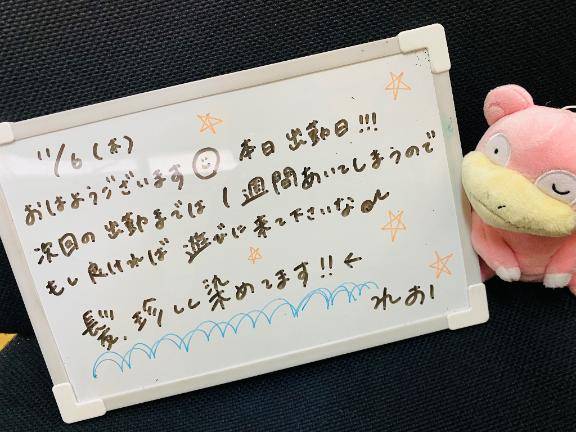 11/6(木)
おはようございます 本日出勤日!!!
次回の出勤までは1週間あいてしまうので
もし良ければ遊びに来て下さいな
髪、珍しく染めてます!!←
れお!